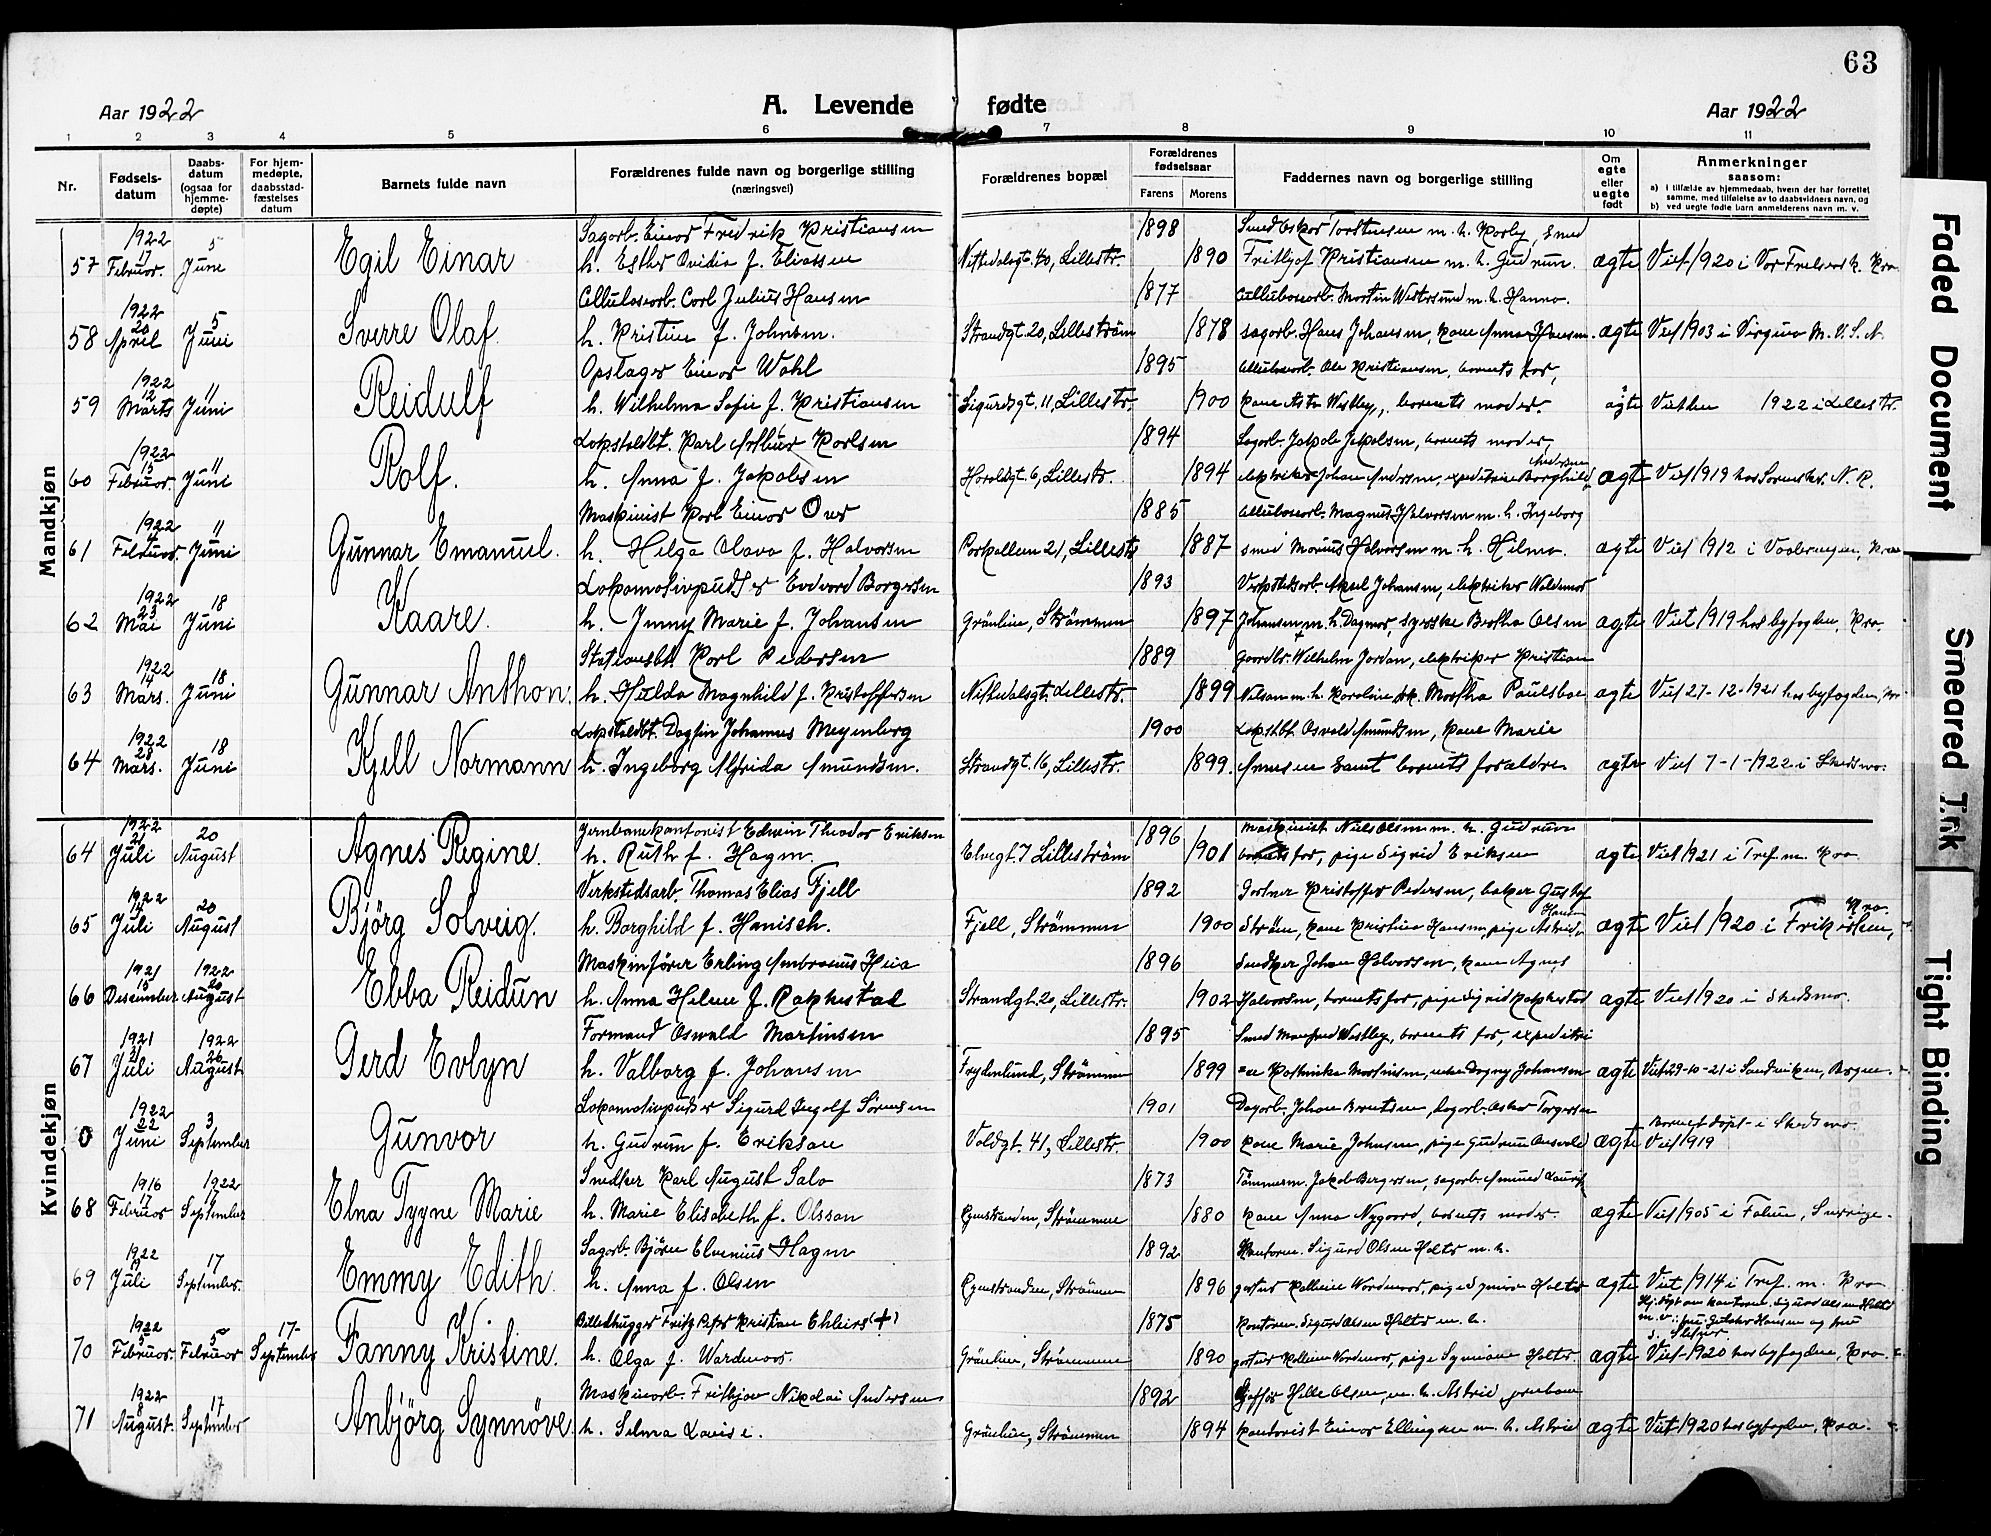 63
Aar 1922
A. Levende fødte
Aar 1922
1 2 3 4 5 6 7 8 9 10 11
Nr.
Fødsels-
datum
Daabs-
datum
(ogsaa for
hjemme-
døpte)
For hjem-
medøpte,
daabsstad-
fæstelses
datum
Barnets fulde navn
Forældrenes fulde navn og borgerlige stilling
(næringsvei)
Forældrenes bopæl
Forældrenes
fødselsaar
Farens Morens
Faddernes navn og borgerlige stilling
Om
egte
eller
uegte
født
Anmerkninger
saasom:
a) i tilfælde av hjemmedaab, hvem der har forrettet
samme, med tilføielse av to daabsvidners navn, og
b) ved uegte fødte barn anmelderens navn m. v.
Mandkjøn
1922 5 Sagarb. Einar Fredrik Kristiansen 1898
57 17 Februar. June Egil Einar h. Esther Ovidia f. Eliassen Nittedalsgt. 40, Lillestr. 1890 Fritjof Kristiansen m. h. Gudrun. ægte Viet 1920 i Vor Frelsers k. Kra
1922 Cellulosearb. Carl Julius Hansen 1877 Cellulosearb. Martin Westersund m. h. Hanna.
58 20 April 5 Juni Sverre Olaf. h. Kristine f. Johnsen. Strandgt. 20, Lillestrøm 1878 sagarb. Hans Johansen, kone Anna Hansen. ægte Viet 1903 i Virginia M. U.S.A.
1922 Opslager Einar Wahl 1895 Cellulosearb. Ole Kristiansen, barnets far,
59 12 Marts 11 Juni Reidulf h. Wilhelma Sofie f. Kristiansen Sigurdsgt. 11, Lillestr. 1900 kone Asta Westley, barnets moder. ägte Viet den 1922 i Lillestr.
1922 Lokstaldbt. Karl Arthur Karlsen 1894 Sagarb. Jakob Jakobsen, barnets moder
60 15 Februar. 11 Juni Rolf. h. Anna f. Jakobsen Haraldsgt. 6, Lillestr. 1894 elektriker Johan Andersen, expeditrice Borghild Andersen ægte Viet 1919 hos Sorenskr. N. R.
1922 Maskinist Karl Einar Over 1885 Cellulosearb. Magnus Halvorsen m. h. Ingeborg
61 4 Februar. 11 Juni Gunnar Emanuel. h. Helga Olava f. Halvorsen Parkalleen 21, Lillestr 1887 smed Marius Halvorsen m. h. Hilma. ægte Viet 1912 i Vaalerengen, Kra
1922 Lokomotivpudser Edvard Borgersen 1893 Verkstedsarb. Aksel Johansen, elektriker Valdemar
62 23 Mai 18 Juni Kaare. h. Jenny Marie f. Johansen Grønlien, Strømmen 1897 Johansen m. h. Dagmar, syerske Bertha Olsen ægte Viet 1919 hos byfogden, Kra.
1922 Stationsbt. Karl Pedersen 1889 Gaardbr. Wilhelm Jordan, elektriker Kristian
63 14 Mars. 18 Juni Gunnar Anthon. h. Hulda Magnhild f. Kristoffersen Nittedalsgt. Lillestr. 1899 Nilsen m. h. Karoline Martha Paulsboe ægte Viet 27-12-1921 hos byfogden, Kr.
1922 Lokstaldbt. Dagfin Johannes Meyenborg 1900 Lokstbt. Osvald Amundsen, kone Marie
64 28 Mars. 18 Juni Kjell Normann h. Ingeborg Alfrida Amundsen. Strandgt. 16, Lillestr. 1899. samt barnets forældre ægte Viet 7-1-1922 i Skedsmo.
Kvindekjøn
1922 Jernbanekontorist Edwin Theodor Eriksen 1896 Maskinist Niels Olsen m. h. Gudrun
64 21 Juli 20 August Agnes Regine. h. Ruth f. Hagen. Elvegt. 7 Lillestrøm 1901 barnets far, pige Sigrid Eriksen ægte Viet 1921 i Tref. m. Kra
1922 Verkstedsarb. Thomas Elias Fjell 1892 Gartner Kristoffer Pedersen, baker Gustaf
65 14 Juli 20 August Bjørg Solveig. h. Borghild f. Hanisch. Fjell, Strømmen 1900 Strøm, kone Kristine Hansen, pige Astrid Hansen ægte Viet 1920 i Frikirken, Kra.
1921 1922 Maskinfører Erling Ambrosius Heia 1896 Snedker Johan Halvorsen, kone Agnes
66 15 Desember 20 August Ebba Reidun h. Anna Helene f. Rakkestad Strandgt. 20, Lillestr. 1902 Halvorsen, barnets far, pige Sigrid Rakkestad ægte Viet 1920 i Skedsmo.
1921 1922 Formand Oswald Martinsen 1895 Smed Manfred Westley, barnets far, expeditri
67 21 Juli 20 August Gerd Evlyn h. Valborg f. Johansen Frydenlund, Strømmen 1899 Martinsen, Dagny Johansen ægte Viet 29-10-21 i Sandviken, Bergen.
1922 Lokomotivpudser Sigurd Ingolf Sørensen 1901 Dagarb. Johan Berntsen, dagarb. Oskar Torgersen Barnet døpt i Skedsmo
0 22 Juni 3 September Gunvor h. Gudrun f. Eriksen Voldgt. 41, Lillestr. 1900 kone Marie Johnsen, pige Gudrun ægte Viet 1919
1916 1922 Snedker Karl August Salo 1873 Tømmerm. Jakob Bergersen, sagarb. Amund
68 17 Februar 17 September Elna Tyyne Marie h. Marie Elisabeth f. Olsson Strømmen 1880 kone Anna Nygaard, barnets moder. ægte Viet 1905 i Falun, Sverige.
1922 Sagarb. Bjørn Elvenius Hagen 1892 Kontorm. Sigurd Olsen Holter m. h.
69 19 Juli 17 September. Emmy Edith. h. Anna f. Olsen Strømmen 1896 Nordenoor, pige Synnøve Holter ægte Viet 1914 i Tref. m. Kra
1922 Billedhugger Fritz Peter Kristian Ehlers (+) 1875 kontorm. Sigurd Olsen Holter m. h. Hj.døpt av kontorm. Sigurd Olsen Holter
m. v.: fru Hansen og fru
70 5 Februar. 5 Februar 17- September Fanny Kristine. h. Olga f. Wardenoor. Grønlien, Strømmen 1890 pige Synnøve Holter ægte Viet 1920 hos byfogden, Kra.
1922 Maskinarb. Frithjov Nikolai Andersen 1892 Helle Olsen, m. h. Astrid jernbane
71 8 August. 17 September Anbjørg Synnøve. h. Selma Lovise. Grønlien, Strømmen 1894 kontorist Einar Ellingsen m. h. Astrid ægte Viet 1920 hos byfogden, Kra.
Faded Document
Smeared Ink
Tight Binding